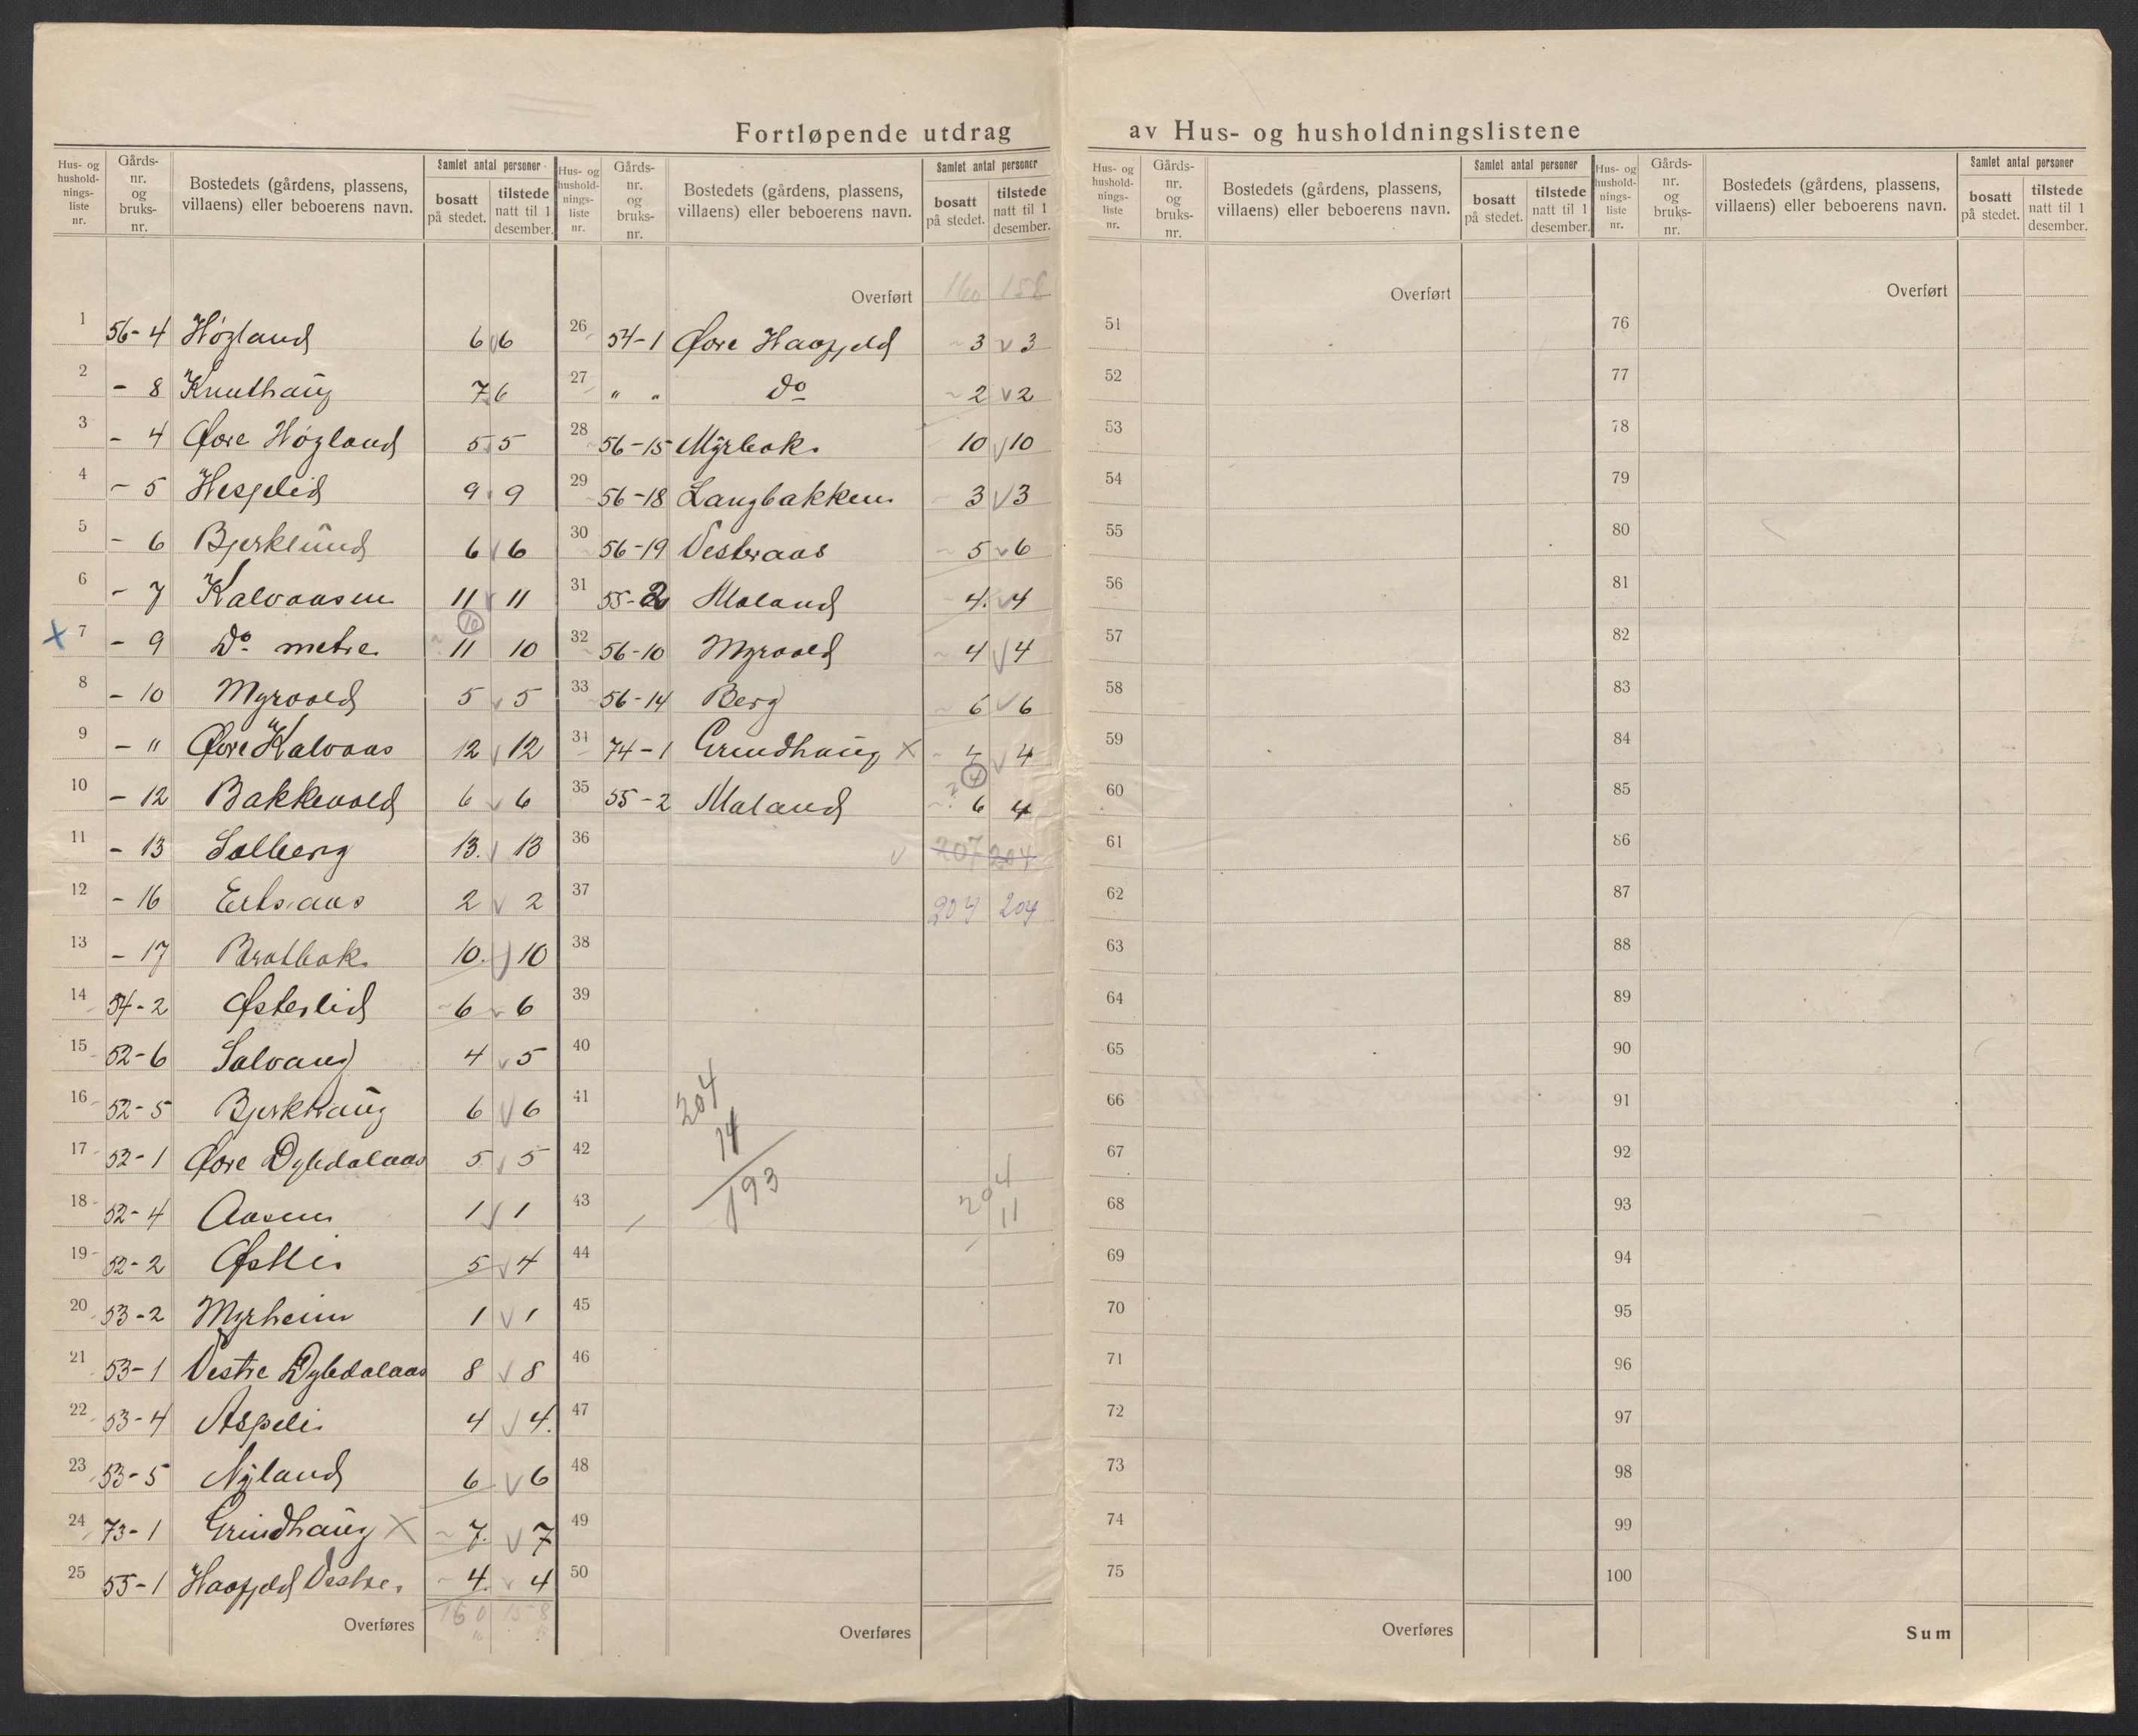 Fortløpende utdrag av Hus- og husholdningslistene
Hus- og hushold-nings-liste nr. | Gårds-nr. og bruks-nr. | Bostedets (gårdens, plassens, villaens) eller beboerens navn. | Samlet antal personer | bosatt på stedet. | tilstede natt til 1 desember.
1 56-4 Høgland 6 v 6
2 - 8 Knuthaug 7 6
3 - 4 Øvre Høgland 5 5
4 - 5 Hesjelid 9 9
5 - 6 Bjerklund 6 v 6
6 - 7 Kalvaasen 11 v 11
x 7 - 9 Do metre (10) 11 10
8 - 10 Myrvold 5 v 5
9 - " Øvre Kalvaas 12 v 12
10 - 12 Bakkevold 6 v 6
11 - 13 Solberg 13. v 13
12 - 16 Ertsaas 2 v 2
13 - 17 Bratbak. 10. v 10
14 54-2 Østerlid 6 v 6
15 52-6 Solvang 4 v 5
16 52-5 Bjerkhaug 6 v 6
17 52-1 Øvre Dybdalaas 5 v 5
18 52-4 Aasen 1 v 1
19 52-2 Østli 5 v 4
20 53-2 Myrheim 1 v 1
21 53-1 Vestre Dybdalaas 8 v 8
22 53-4 Aspeli 4 v 4.
23 53-5 Nyland 6. v 6
24 73-1 Grindhaug x 7. v 7
25 55-1 Haafjeld Vestre. 4. v 4
Overføres 160 158
Hus- og hushold-nings-liste nr. | Gårds-nr. og bruks-nr. | Bostedets (gårdens, plassens, villaens) eller beboerens navn. | Samlet antal personer | bosatt på stedet. | tilstede natt til 1 desember.
Overført 160 158
26 54-1 Øvre Haafjeld 3 v 3
27 " " Do 2 v 2
28 56-15 Myrbak. 10 v 10
29 56-18 Langbakken 3 v 3
30 56-19 Vesteraas 5 v 6
31 55-2 Moland 4. v 4
32 56-10 Myrvold 4 v 4
33 56-14 Berg 6 v 6
34 74-1 Grindhaug x 4 v 4
35 55-2 Moland (4) 6 4
36 v 207 204
37 204 204
38
39
40
41 204
42 11
193
43 204
11
44
45
46
47
48
49
50
Overføres
Hus- og hushold-nings-liste nr. | Gårds-nr. og bruks-nr. | Bostedets (gårdens, plassens, villaens) eller beboerens navn. | Samlet antal personer | bosatt på stedet. | tilstede natt til 1 desember.
Overført
51
52
53
54
55
56
57
58
59
60
61
62
63
64
65
66
67
68
69
70
71
72
73
74
75
Overføres
Hus- og hushold-nings-liste nr. | Gårds-nr. og bruks-nr. | Bostedets (gårdens, plassens, villaens) eller beboerens navn. | Samlet antal personer | bosatt på stedet. | tilstede natt til 1 desember.
Overført
76
77
78
79
80
81
82
83
84
85
86
87
88
89
90
91
92
93
94
95
96
97
98
99
100
Sum